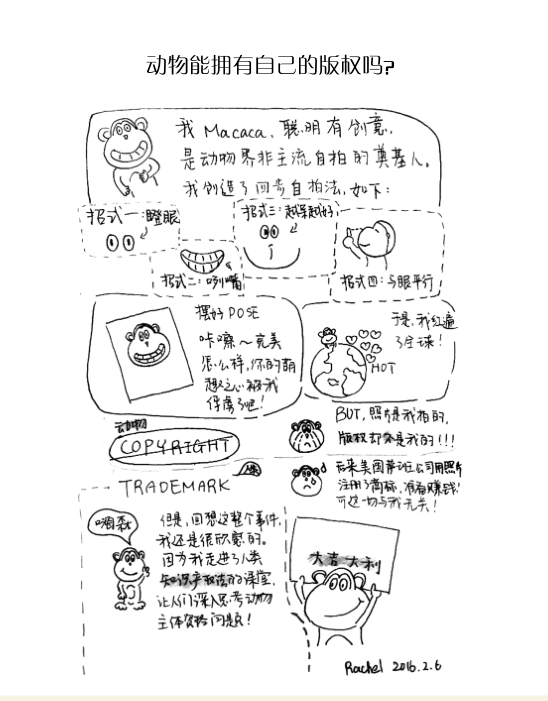 动物能拥有自己的版权吗?
我 Macaca, 聪明有创意,
是动物界非主流自拍的奠基人。
我创造了四步自拍法, 如下:
招式一: 瞪眼
招式二: 咧嘴
招式三: 越呆越好
招式四: 与眼平行
摆好 POSE
咔嚓~完美
怎么样, 你的萌
想之心被我
俘虏了吧!
于是, 我红遍
了全球!
HOT
动物
COPYRIGHT
BUT, 照片是我拍的,
版权却不是我的!!!
TRADEMARK
后来美国某公司用照片
注册了商标, 准备赚钱!
可这一切与我无关!
嗨森
但是, 回想这整个事件,
我还是很欣慰的。
因为我走进了人类
知识产权法的课堂,
让人们深入思考动物
主体资格问题啦!
大吉大利
Rachel 2016.2.6